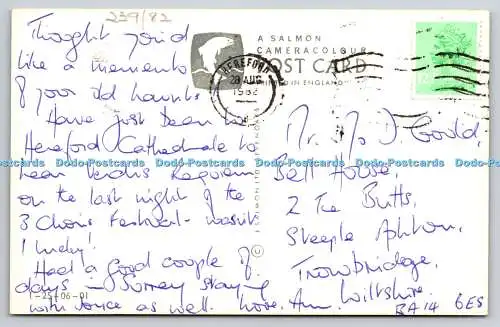 239/82
Thought you'd
like a memento
of your old haunts.
Have just been to
Hereford Cathedrale to
hear Verdi's Requiem
on the last night of the
3 Choirs Festival - wasn't
I lucky!
Had a good couple of
days - Surrey staying
with Joyce as well. Love, Ann.
A SALMON
CAMERACOLOUR
POST CARD
PRINTED IN ENGLAND
HEREFORD
28 AUG
1982
Gould,
Bell House,
2 The Butts,
Steeple Ashton,
Trowbridge,
Wiltshire.
BA14 6ES
1-25-06-01
Dodo-Postcards Dodo-Postcards Dodo-Postcards Dodo-Postcards Dodo-Postcards